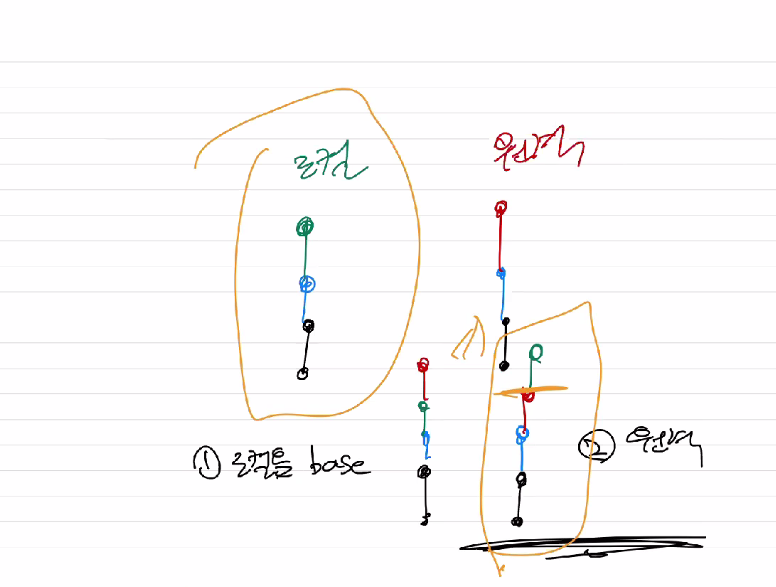 로컬
원격
① 로컬을 base
② 원격